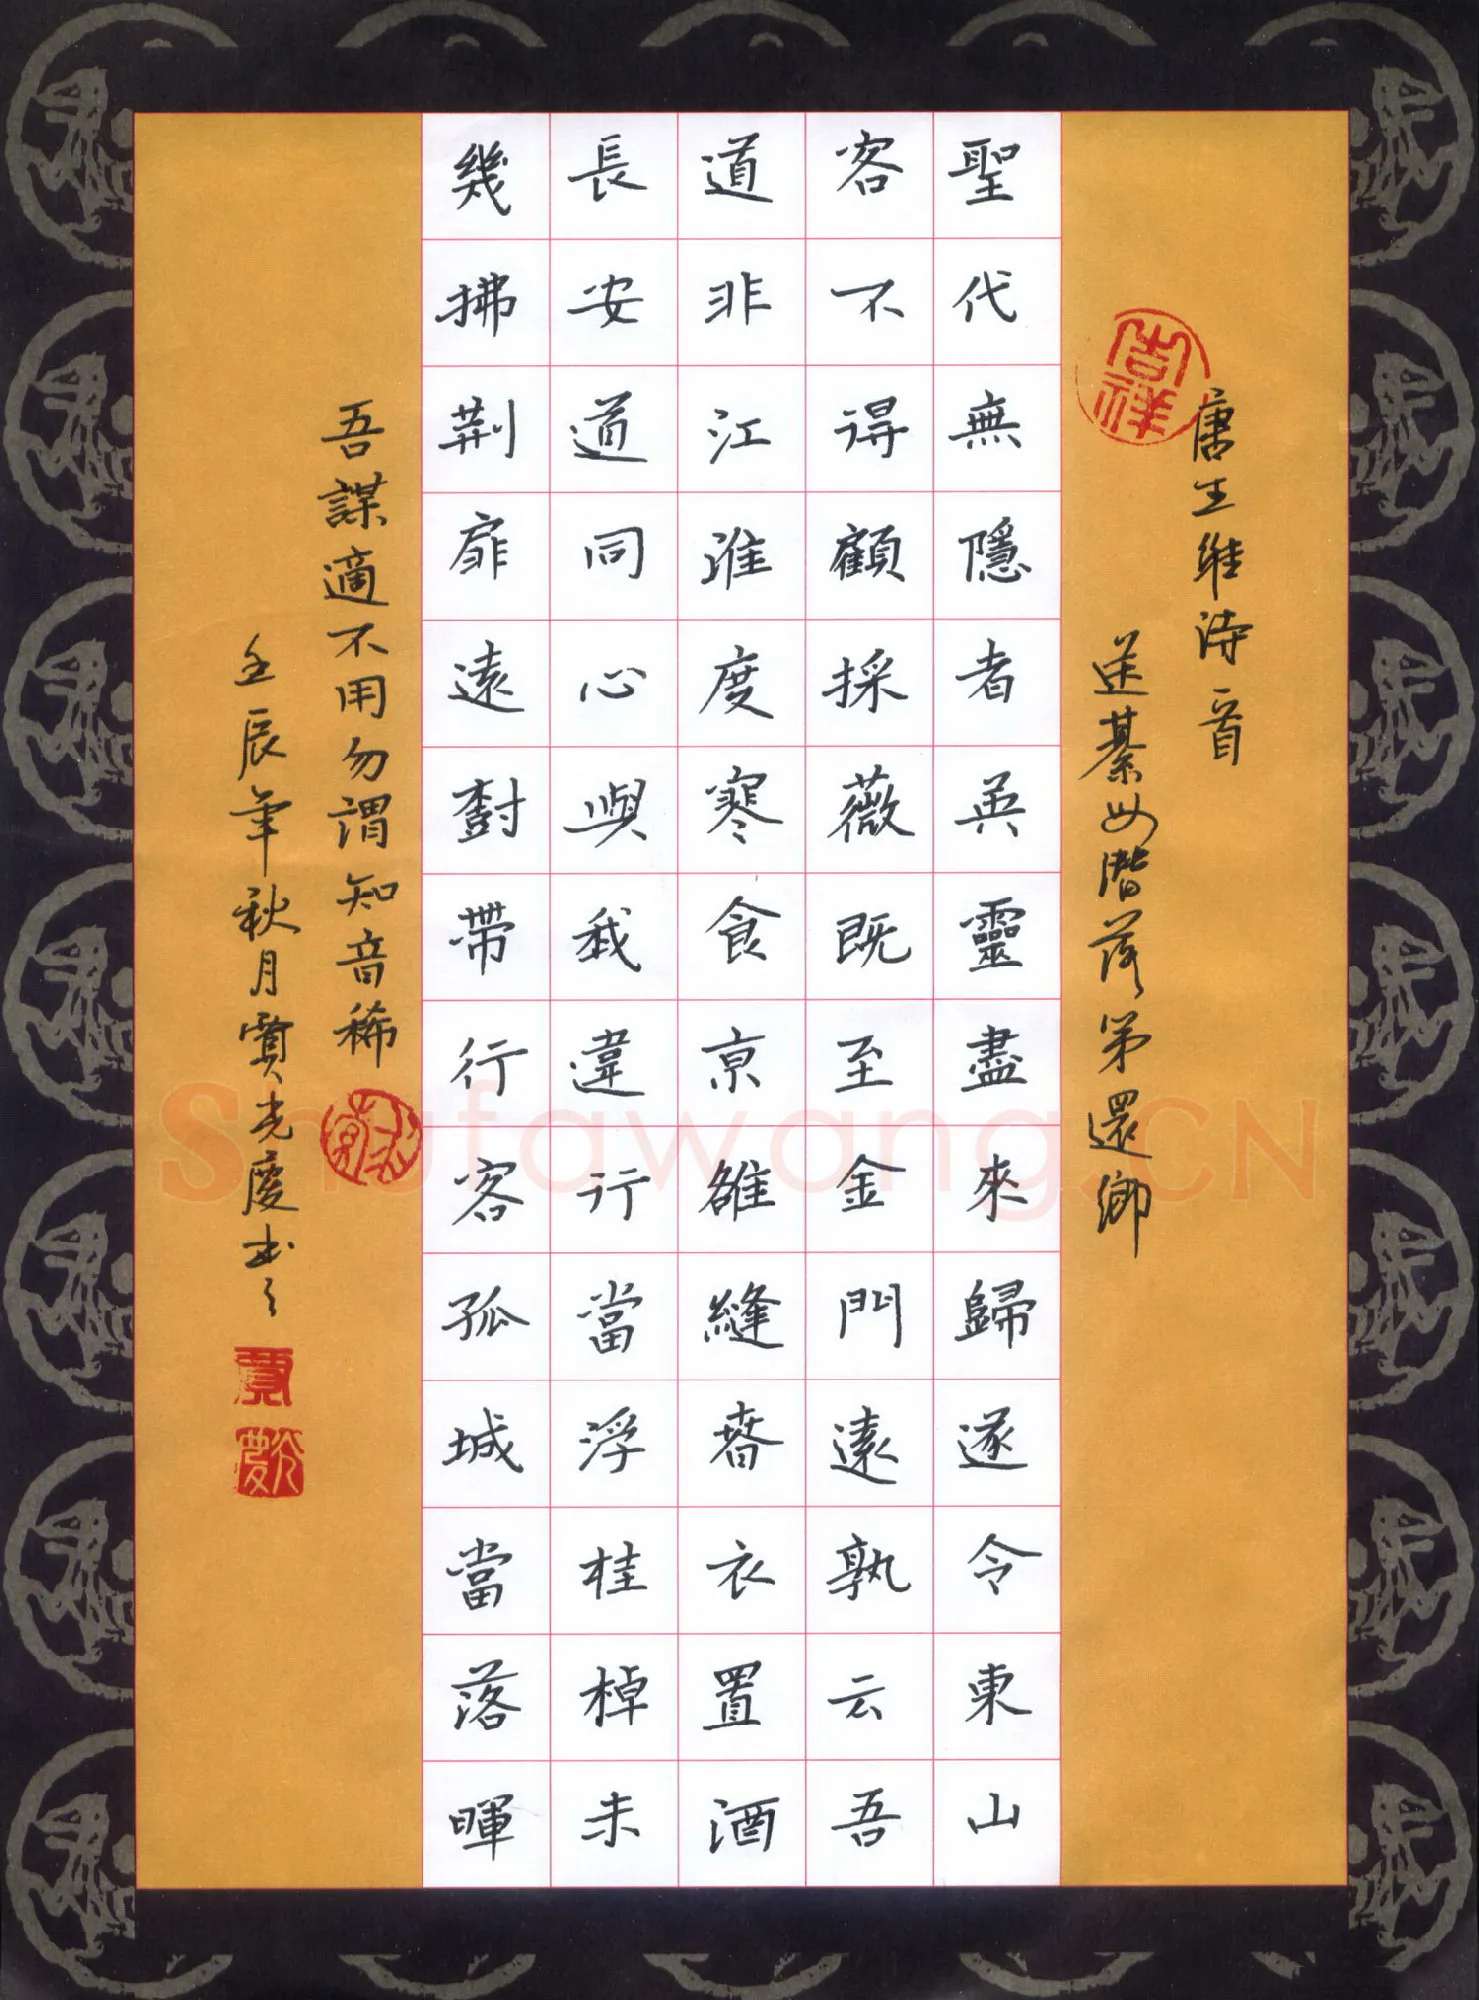 唐王維诗一首
送綦毋潛落第還鄉
吉祥
聖代無隱者英靈盡來歸遂令東山
客不得顧採薇既至金門遠孰云吾
道非江淮度寒食京雒縫春衣置酒
長安道同心與我違行當浮桂棹未
幾拂荊扉遠樹帶行客孤城當落暉
吾謀適不用勿謂知音稀
壬辰年秋月賈光慶书之
賈
光慶
Shufawang.CN